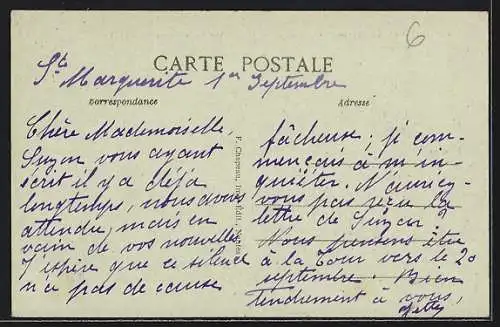 6
CARTE POSTALE
Ste Marguerite 1er Septembre
Correspondance
Adresse
Chère Mademoiselle,
Suzon vous ayant
écrit il y a déjà
longtemps, nous avons
attendu, mais en
vain de vos nouvelles.
J'espère que ce silence
n'a pas de cause
fâcheuse; je com-
mençais à m'in-
quiéter. N'auriez-
vous pas reçu la
lettre de Suzon?
Nous pensons être
à la Tour vers le 20
septembre. Bien
tendrement à vous,